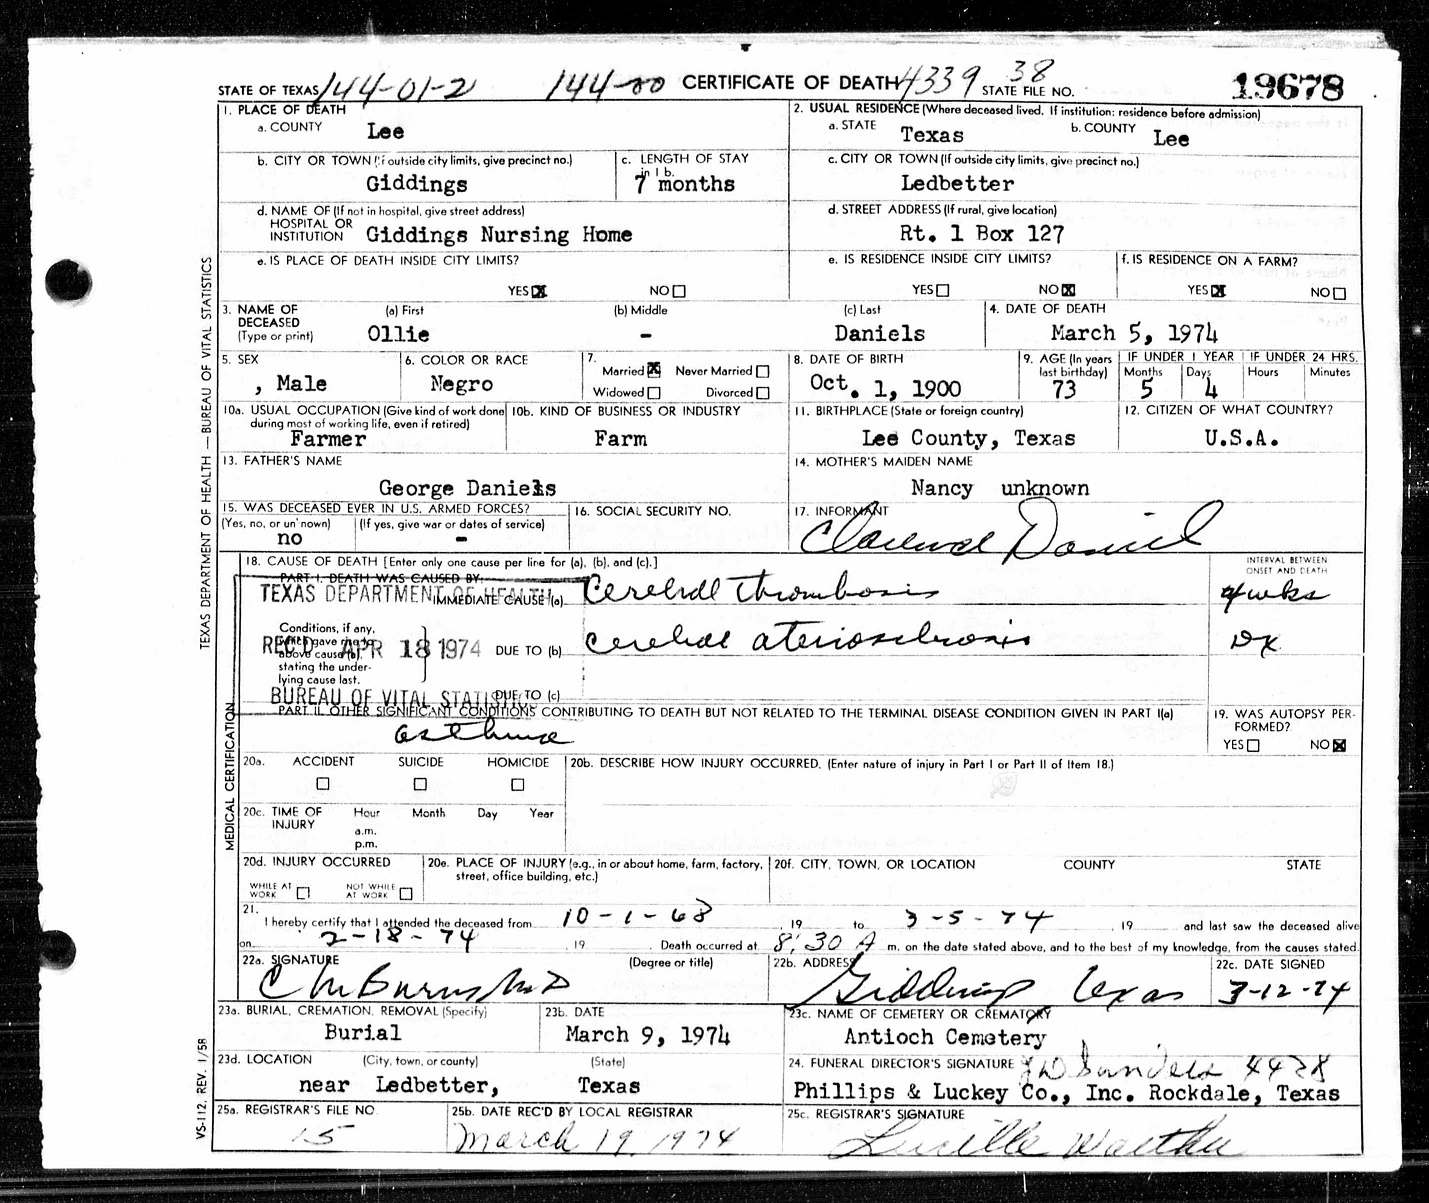 STATE OF TEXAS 144-01-2 144-00 CERTIFICATE OF DEATH 4339 38 STATE FILE NO. 19678
1. PLACE OF DEATH
a. COUNTY Lee
2. USUAL RESIDENCE (Where deceased lived. If institution: residence before admission)
a. STATE Texas b. COUNTY Lee
b. CITY OR TOWN (If outside city limits, give precinct no.) Giddings
c. LENGTH OF STAY in 1 b. 7 months
c. CITY OR TOWN (If outside city limits, give precinct no.) Ledbetter
d. NAME OF (If not in hospital, give street address) HOSPITAL OR INSTITUTION Giddings Nursing Home
d. STREET ADDRESS (If rural, give location) Rt. 1 Box 127
e. IS PLACE OF DEATH INSIDE CITY LIMITS?
YES ☒ NO ☐
e. IS RESIDENCE INSIDE CITY LIMITS?
YES ☐ NO ☒
f. IS RESIDENCE ON A FARM?
YES ☒ NO ☐
3. NAME OF DECEASED (Type or print)
(a) First Ollie
(b) Middle -
(c) Last Daniels
4. DATE OF DEATH March 5, 1974
5. SEX , Male
6. COLOR OR RACE Negro
7. Married ☒ Never Married ☐
Widowed ☐ Divorced ☐
8. DATE OF BIRTH Oct. 1, 1900
9. AGE (In years last birthday) 73
IF UNDER 1 YEAR Months 5 Days 4
IF UNDER 24 HRS. Hours Minutes
10a. USUAL OCCUPATION (Give kind of work done during most of working life, even if retired) Farmer
10b. KIND OF BUSINESS OR INDUSTRY Farm
11. BIRTHPLACE (State or foreign country) Lee County, Texas
12. CITIZEN OF WHAT COUNTRY? U.S.A.
13. FATHER'S NAME George Daniels
14. MOTHER'S MAIDEN NAME Nancy unknown
15. WAS DECEASED EVER IN U.S. ARMED FORCES?
(Yes, no, or un'nown) no
(If yes, give war or dates of service) -
16. SOCIAL SECURITY NO.
17. INFORMANT Clarence Daniel
18. CAUSE OF DEATH [Enter only one cause per line for (a), (b), and (c).]
INTERVAL BETWEEN ONSET AND DEATH
PART I. DEATH WAS CAUSED BY:
IMMEDIATE CAUSE (a) Cerebral thrombosis 4 wks
TEXAS DEPARTMENT OF HEALTH
REC'D APR 18 1974
BUREAU OF VITAL STATISTICS
Conditions, if any, which gave rise to above cause (a), stating the under-lying cause last.
DUE TO (b) cerebral ateriosclrosis
DUE TO (c)
PART II. OTHER SIGNIFICANT CONDITIONS CONTRIBUTING TO DEATH BUT NOT RELATED TO THE TERMINAL DISEASE CONDITION GIVEN IN PART I(a)
asthma
19. WAS AUTOPSY PERFORMED?
YES ☐ NO ☒
20a. ACCIDENT ☐ SUICIDE ☐ HOMICIDE ☐
20b. DESCRIBE HOW INJURY OCCURRED. (Enter nature of injury in Part I or Part II of Item 18.)
20c. TIME OF INJURY Hour Month Day Year
a.m.
p.m.
20d. INJURY OCCURRED
WHILE AT WORK ☐ NOT WHILE AT WORK ☐
20e. PLACE OF INJURY (e.g., in or about home, farm, factory, street, office building, etc.)
20f. CITY, TOWN, OR LOCATION COUNTY STATE
21. I hereby certify that I attended the deceased from 10-1-68 19 to 3-5-74, 19 and last saw the deceased alive
on 2-18-74, 19 . Death occurred at 8:30 A m. on the date stated above, and to the best of my knowledge, from the causes stated.
22a. SIGNATURE (Degree or title) C M Burns MD
22b. ADDRESS Giddings, Texas
22c. DATE SIGNED 3-12-74
23a. BURIAL, CREMATION, REMOVAL (Specify) Burial
23b. DATE March 9, 1974
23c. NAME OF CEMETERY OR CREMATORY Antioch Cemetery
23d. LOCATION (City, town, or county) (State)
near Ledbetter, Texas
24. FUNERAL DIRECTOR'S SIGNATURE Sanders 4428
Phillips & Luckey Co., Inc. Rockdale, Texas
25a. REGISTRAR'S FILE NO. 15
25b. DATE REC'D BY LOCAL REGISTRAR March 19, 1974
25c. REGISTRAR'S SIGNATURE Lucille Walther
TEXAS DEPARTMENT OF HEALTH — BUREAU OF VITAL STATISTICS
MEDICAL CERTIFICATION
VS-112, REV. 1/58